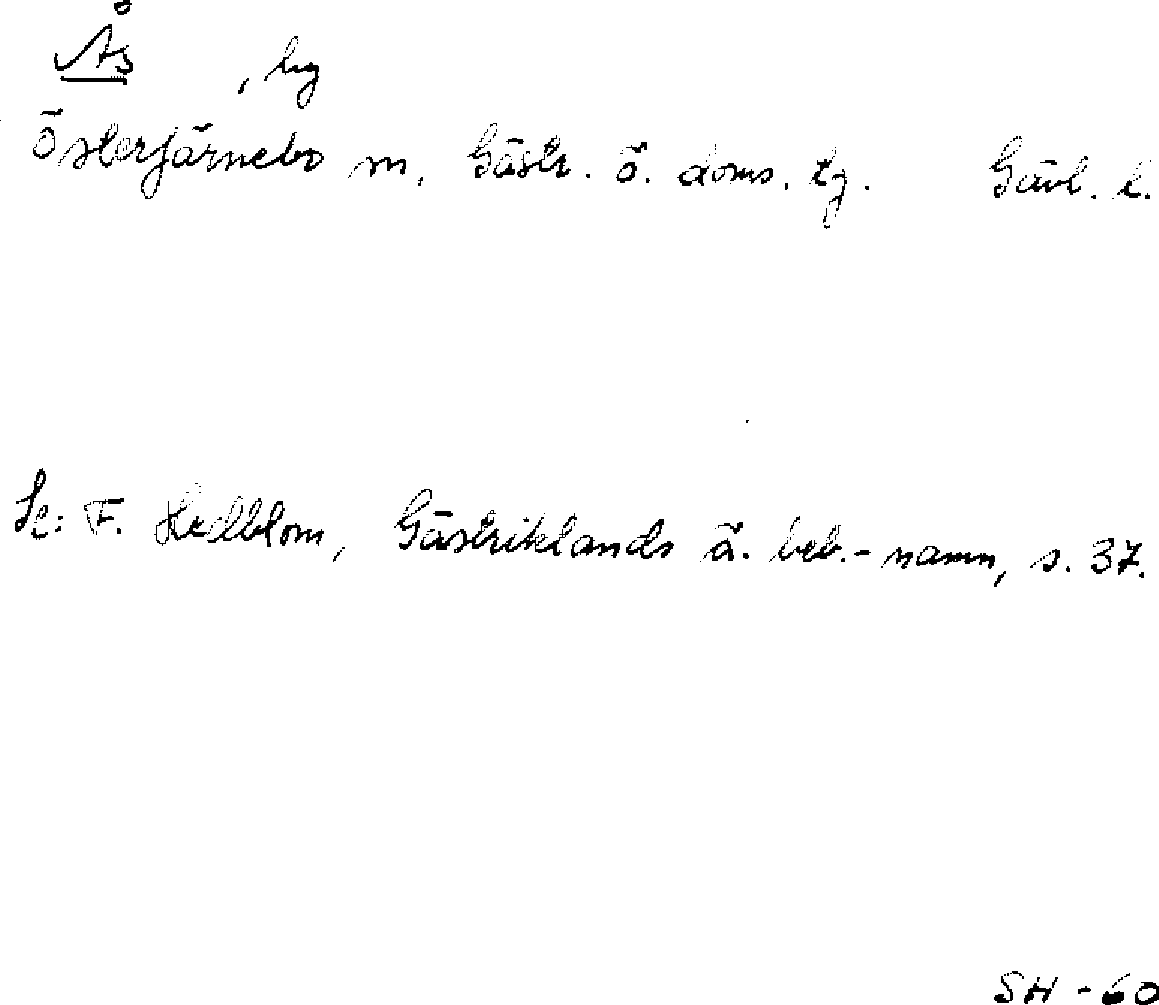 Ås , by
Österfärnebo sn, Gästr. ö. doms. tg. Gävl. l.
Se: F. Hedblom, Gästriklands ä. beb.-namn, s. 37.
SH - 60